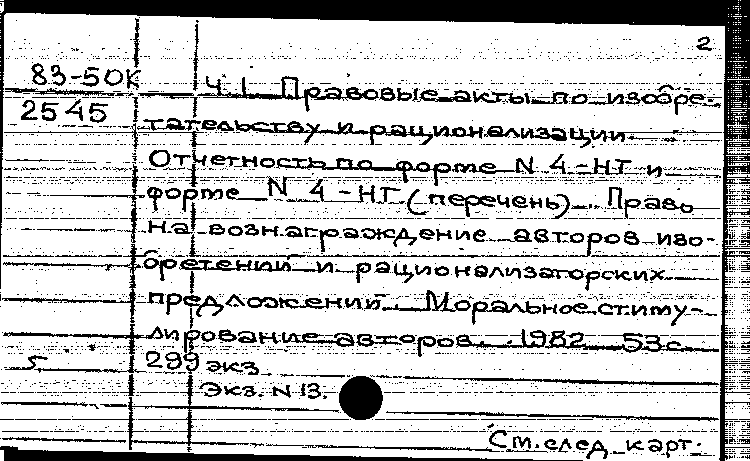 2
83-50К Ч. 1 Правовые акты по изобре-
2545 тательству и рационализации.
Отчетность по форме N 4-НТ и
форме N 4-НТ (перечень). Право
на вознаграждение авторов изо-
бретений и рационализаторских
предложений. Моральное стиму-
лирование авторов. 1982 53с.
5 299 экз.
Экз. N 13.
См. след. карт.